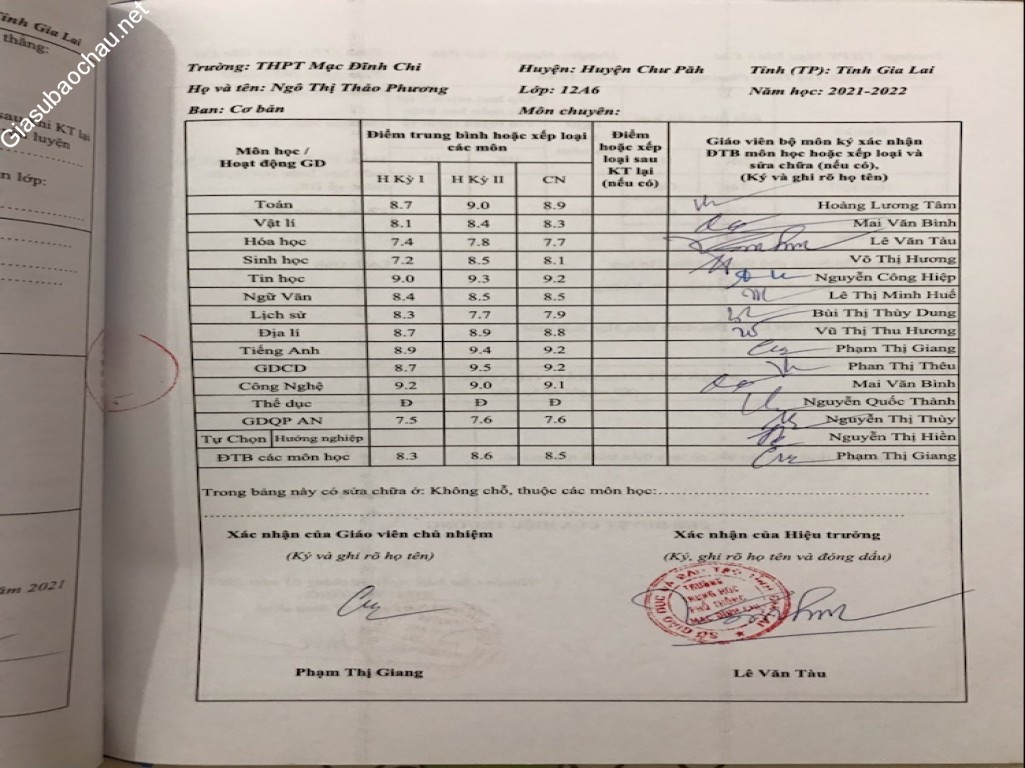 Giasubaochau.net
Tỉnh Gia Lai
thẳng:
KT lại
luyện
n lớp:
ăm 2021
Trường: THPT Mạc Đĩnh Chi Huyện: Huyện Chư Păh Tỉnh (TP): Tỉnh Gia Lai
Họ và tên: Ngô Thị Thảo Phương Lớp: 12A6 Năm học: 2021-2022
Ban: Cơ bản Môn chuyên:
Môn học / Hoạt động GD
Điểm trung bình hoặc xếp loại các môn
H Kỳ I H Kỳ II CN
Điểm hoặc xếp loại sau KT lại (nếu có)
Giáo viên bộ môn ký xác nhận ĐTB môn học hoặc xếp loại và sửa chữa (nếu có), (Ký và ghi rõ họ tên)
Toán 8.7 9.0 8.9 Hoàng Lương Tâm
Vật lí 8.1 8.4 8.3 Mai Văn Bình
Hóa học 7.4 7.8 7.7 Lê Văn Tàu
Sinh học 7.2 8.5 8.1 Võ Thị Hương
Tin học 9.0 9.3 9.2 Nguyễn Công Hiệp
Ngữ Văn 8.4 8.5 8.5 Lê Thị Minh Huế
Lịch sử 8.3 7.7 7.9 Bùi Thị Thùy Dung
Địa lí 8.7 8.9 8.8 Vũ Thị Thu Hương
Tiếng Anh 8.9 9.4 9.2 Phạm Thị Giang
GDCD 8.7 9.5 9.2 Phan Thị Thêu
Công Nghệ 9.2 9.0 9.1 Mai Văn Bình
Thể dục Đ Đ Đ Nguyễn Quốc Thành
GDQP AN 7.5 7.6 7.6 Nguyễn Thị Thùy
Tự Chọn Hướng nghiệp Nguyễn Thị Hiền
ĐTB các môn học 8.3 8.6 8.5 Phạm Thị Giang
Trong bảng này có sửa chữa ở: Không chỗ, thuộc các môn học:
Xác nhận của Giáo viên chủ nhiệm Xác nhận của Hiệu trưởng
(Ký và ghi rõ họ tên) (Ký, ghi rõ họ tên và đóng dấu)
TRƯỜNG
TRUNG HỌC
PHỔ THÔNG
MẠC ĐĨNH CHI
Phạm Thị Giang Lê Văn Tàu